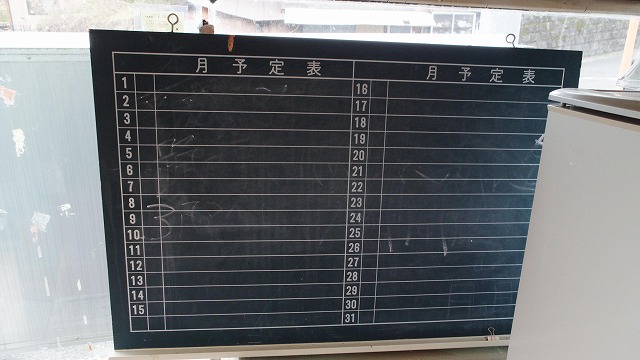 月予定表
1
2
3
4
5
6
7
8
9
10
11
12
13
14
15
月予定表
16
17
18
19
20
21
22
23
24
25
26
27
28
29
30
31